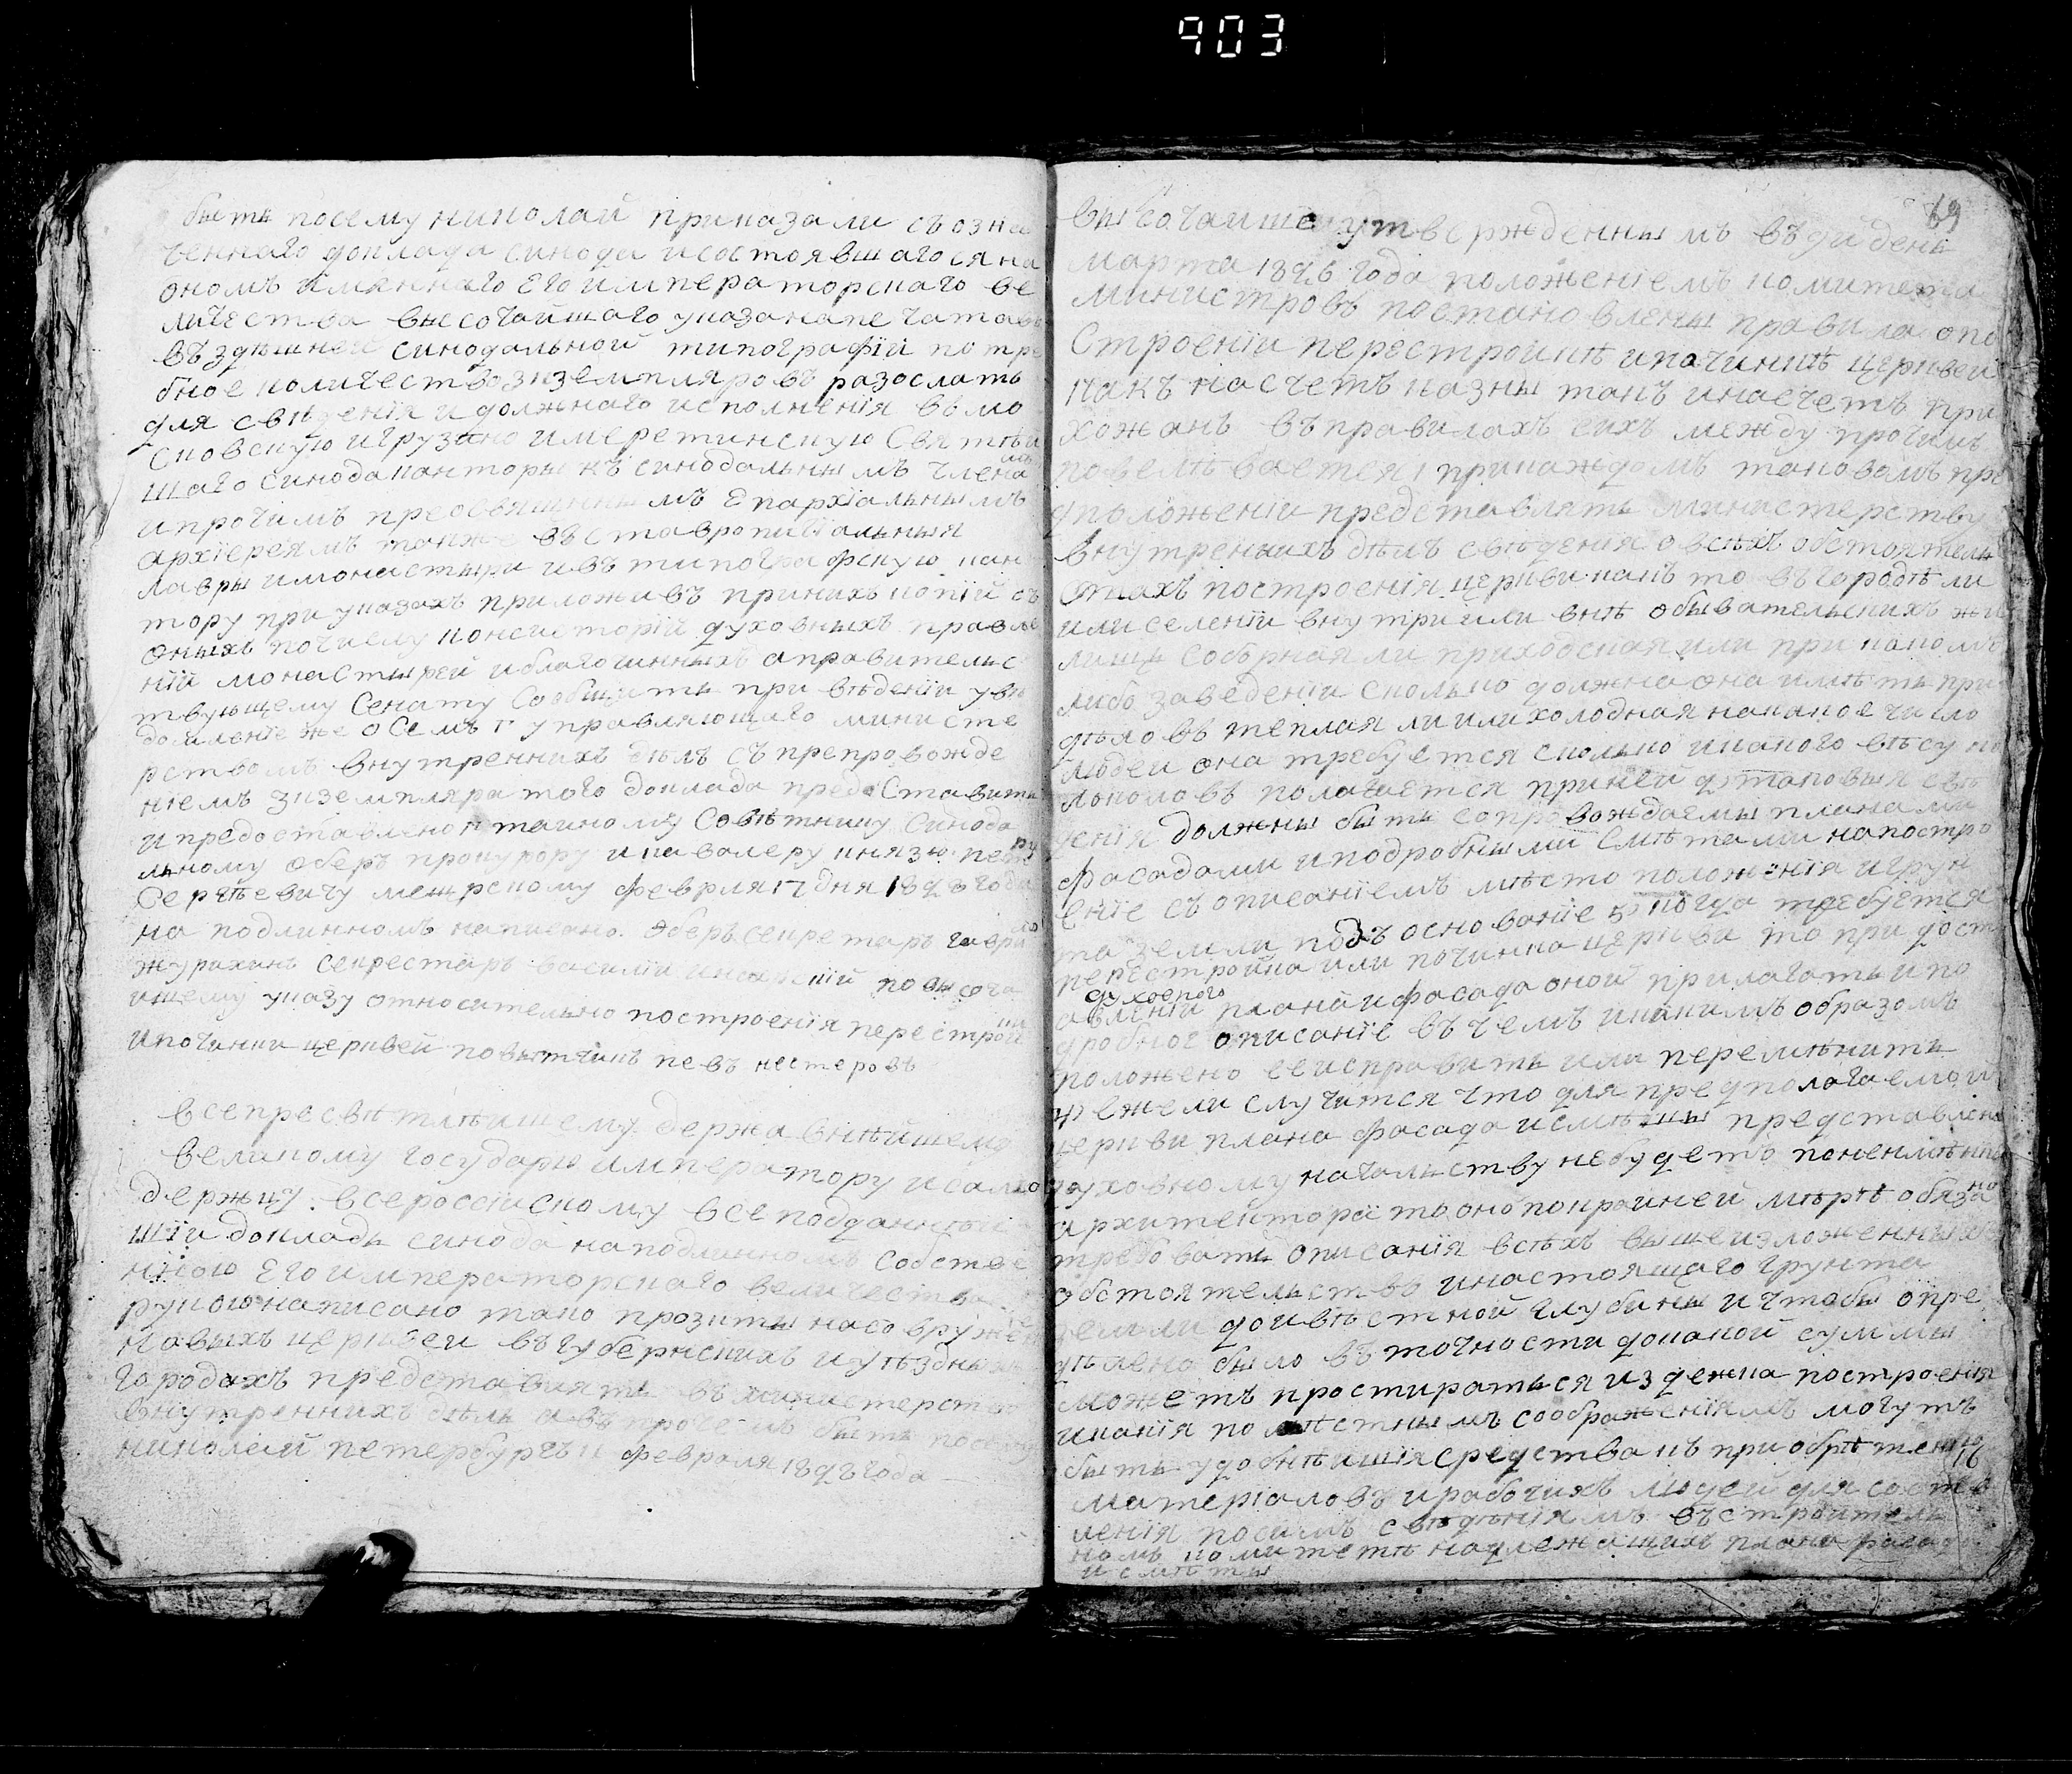 903
быть посему николай приказали съ озна
ченнаго доклада синода исостоявшагося на
ономъ имяннаго Его императорскаго ве
личества высочайшаго указа напечатавъ
въ здѣшней синодальной типографіи потре
бное количество экземпляровъ разослать
для свѣденія и должнаго исполненія въ мо
сковскую игрузино имеретинскую Святѣи
шаго синода канторы къ синодальнымъ члена
мъ
ипрочимъ преосвященнымъ Епархіальнымъ
архіереямъ также въ ставропигіальныя
лавры имонастыри ивъ типографскую кан
тору при указахъ приложивъ принихъ копій съ
оныхъ почислу консисторій духовныхъ правле
ній монастырей иблагочинныхъ аправительс
твующему Сенату Сообщить при вѣденіи увѣ
домленіе же о Семъ управляющаго министе
рствомъ внутреннихъ дѣлъ съ препровожде
ніемъ экземпляра того доклада предоставить
и предоставлено тайному Совѣтнику Синода
льному оберъ прокурору икавалеру князю петру
Сергѣевичу мещерскому февраля 17 дня 1828 года
на подлинномъ написано. Оберъ секретарь гаврило
журихинъ секрестарь василій инсарскій по высоча
ишему указу относительно построенія перестройки
ипочинки церквей повытчикъ левъ нестеровъ
всепресвѣтлѣишему державнѣйшему
великому государю императору исамо
держцу всероссіискому всеподданнѣи
шіи докладъ синода наподлинномъ собстве
нною Его императорскаго величества
рукою написано тако прозкты насооружен
новыхъ церквеи въгубернскихъ иуѣздныхъ
городахъ представлять въ министерство
внутреннихъ дѣлъ авъ протчемъ быть посему
николай петербургъ 11 февраля 1828 года
69
высочаише утвержденнымъ въ день
марта 1826 года положеніемъ комитета
министровъ постановлены правила опо
Строеніи перестройкѣ ипочинкѣ церквеи
какъ насчетъ казны такъ инасчетъ при
хожанъ въ правилахъ сихъ между прочимъ
повелѣвается, при каждомъ таковомъ пре
дположеніи представлять министерству
внутреннихъ дѣлъ свѣденія овсѣхъ обстоятель
ствахъ построенія церкви какъ то въ городѣ ли
или селеніи внутри или внѣ обывательскихъ жи
лищъ соборная ли приходская или при какомъ
либо заведеніи сколько должна она имѣть при
дѣловъ теплая ли или холодная накакое число
людеи она требуется сколько икакого вѣсу ко
локоловъ полагается при ней дутаковыя свѣ
денія должны быть сопровождаемы планами
фасадами иподробными смѣтами напостро
еніе съ описаніемъ мѣсто положенія игрун
та земли подъ основаніе 5) когда требуется
перестройка или починка церкви то при дост
духовного
авленіи плана ифасада оной прилагать ипо
дробное описаніе въ чемъ икакимъ образомъ
положено ее исправить или перемѣнить
Ежели случится что для предполагаемои
церкви плана фасада исмѣты представлено
духовному начальству небудетъ покеимѣнію
архитектора то оно покраиней мѣрѣ обязано
требовать описанія всѣхъ вышеизложенныхъ
обстоятельствъ инастоящаго грунта
земли доивѣстной глубины ичтобы опре
дѣлено было въ точности докакой суммы
можетъ простираться издежка построенія
икакія по мѣстнымъ соображеніямъ могутъ
быть удобнѣишія средства къ приобрѣтенію
16
матеріаловъ ирабочихъ людей для состав
ленія посимъ свѣденіямъ въстроитель
номъ комитетѣ надлежащихъ плана фасада
и смѣты